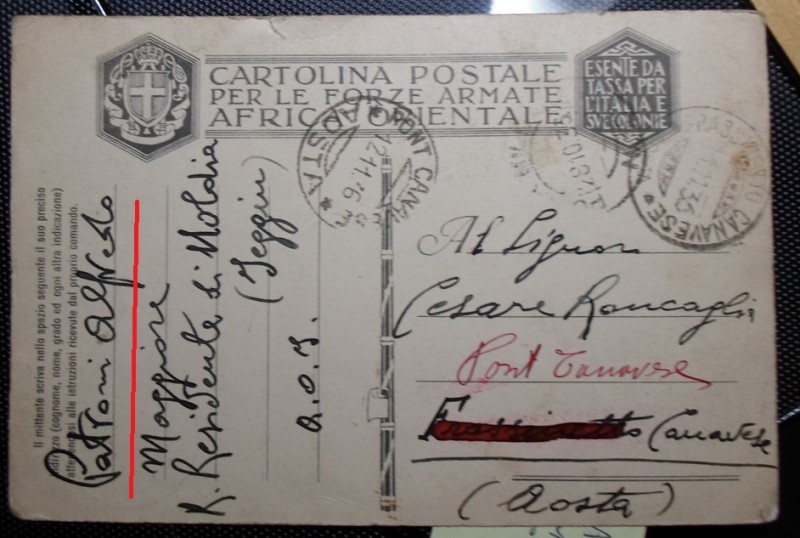 CARTOLINA POSTALE
PER LE FORZE ARMATE
AFRICA ORIENTALE
ESENTE DA
TASSA PER
L'ITALIA E
SVE COLONIE
Il mittente scriva nello spazio seguente il suo preciso
indirizzo (cognome, nome, grado ed ogni altra indicazione)
attenendosi alle istruzioni ricevute dal proprio comando.
Patroni Alfredo
Maggiore
R. Residente di Moldia
(Seggiu)
A.O.I.
PONT CANAV
AOSTA
12.11.36
CANAVESE
Al Signor
Cesare Roncaglia
Pont Canavese
Frassinetto Canavese
(Aosta)